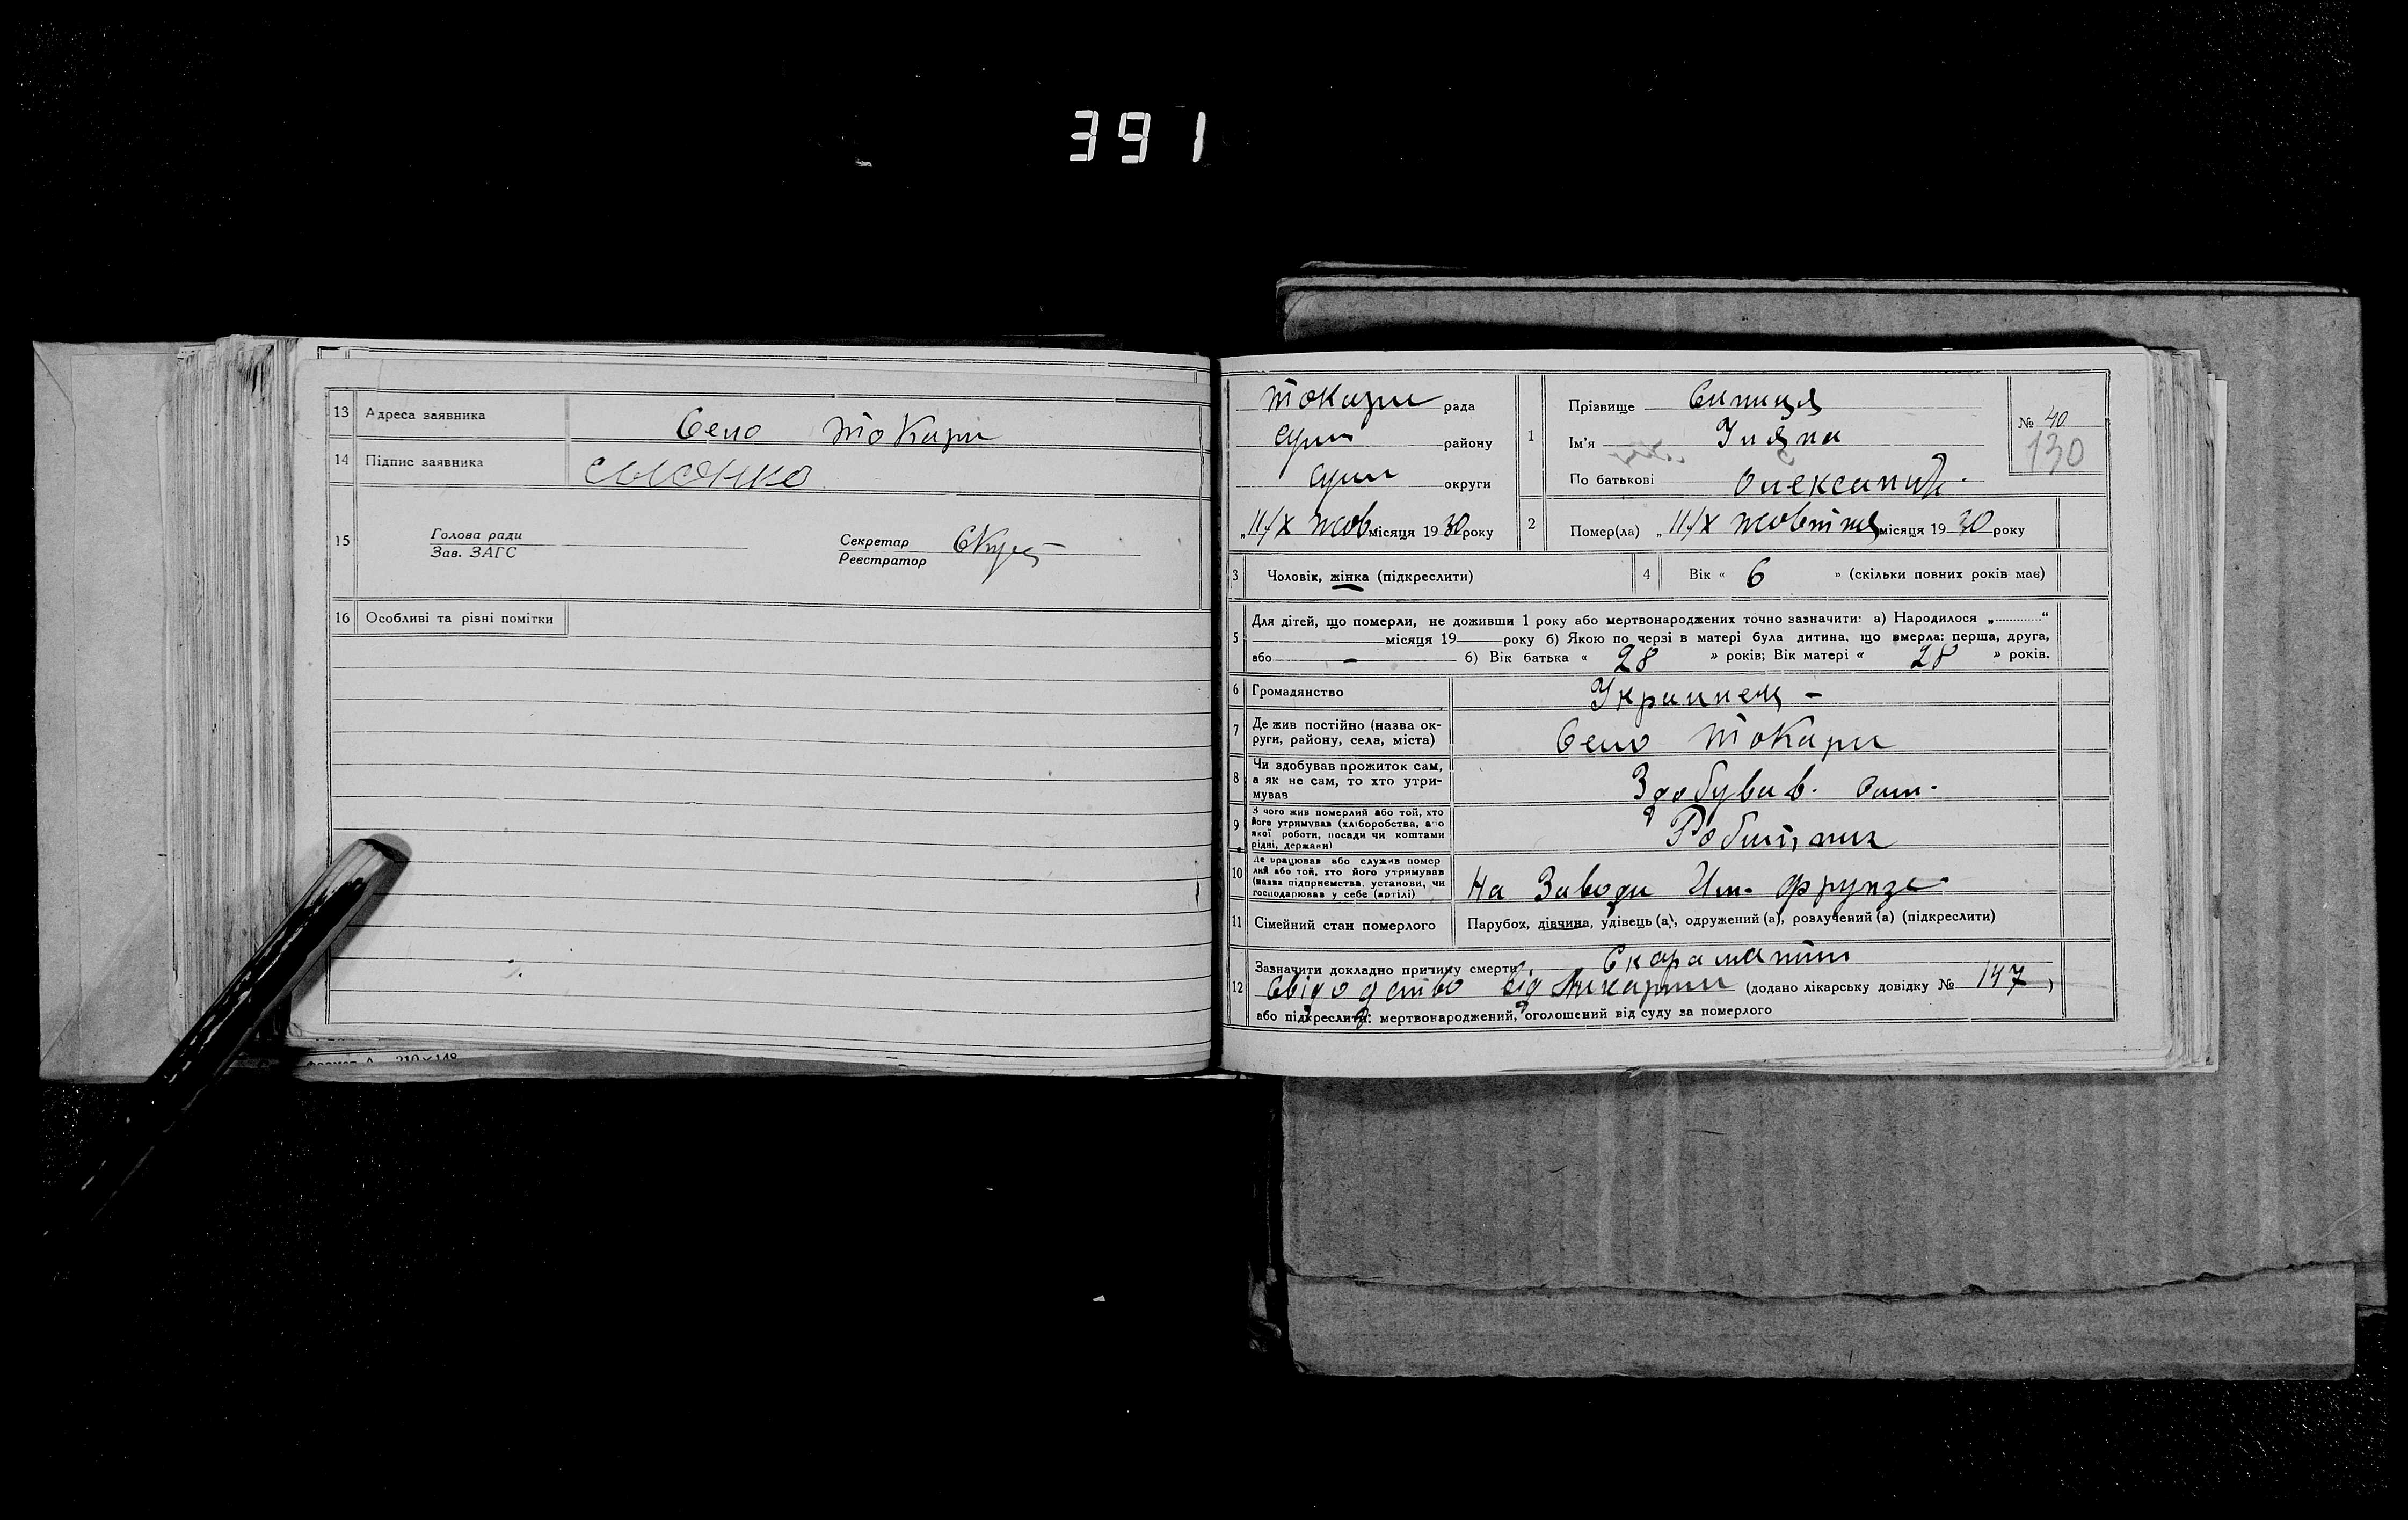 391
13 Адреса заявника Село Токари
14 Підпис заявника
15 Голова ради
Зав. ЗАГС
Секретар
Реєстратор
16 Особливі та різні помітки
Формат А 210×148
Токари рада
Суми району
Суми округи
„11/X жов місяця 1930 року
1 Прізвище Синиця
Ім'я Уляна
По батькові Олександр.
№ 40
130
2 Помер(ла) „11/X жовтня місяця 1930 року
3 Чоловік, жінка (підкреслити)
4 Вік « 6 » (скільки повних років має)
5 Для дітей, що померли, не доживши 1 року або мертвонароджених точно зазначити: а) Народилося „............“
місяця 19 року б) Якою по черзі в матері була дитина, що вмерла: перша, друга,
або — б) Вік батька « 28 » років; Вік матері « 28 » років.
6 Громадянство Украинец -
7 Де жив постійно (назва ок-
руги, району, села, міста) Село Токари
8 Чи здобував прожиток сам,
а як не сам, то хто утри-
мував Здобував. Сам.
9 З чого жив померлий або той, хто
його утримував (хліборобства, або
якої роботи, посади чи коштами
рідні, держави) Робитник
10 Де працював або служив помер
лий або той, хто його утримував
(назва підприємства, установи, чи
господарював у себе (артілі) На Заводи Им. Фрунзе.
11 Сімейний стан померлого Парубох, дівчина, удівець (а), одружений (а), розлучений (а) (підкреслити)
12 Зазначити докладно причину смерти Скарлатин
Свідодство від Ликарни (додано лікарську довідку № 147)
або підкреслити: мертвонароджений, оголошений від суду за померлого